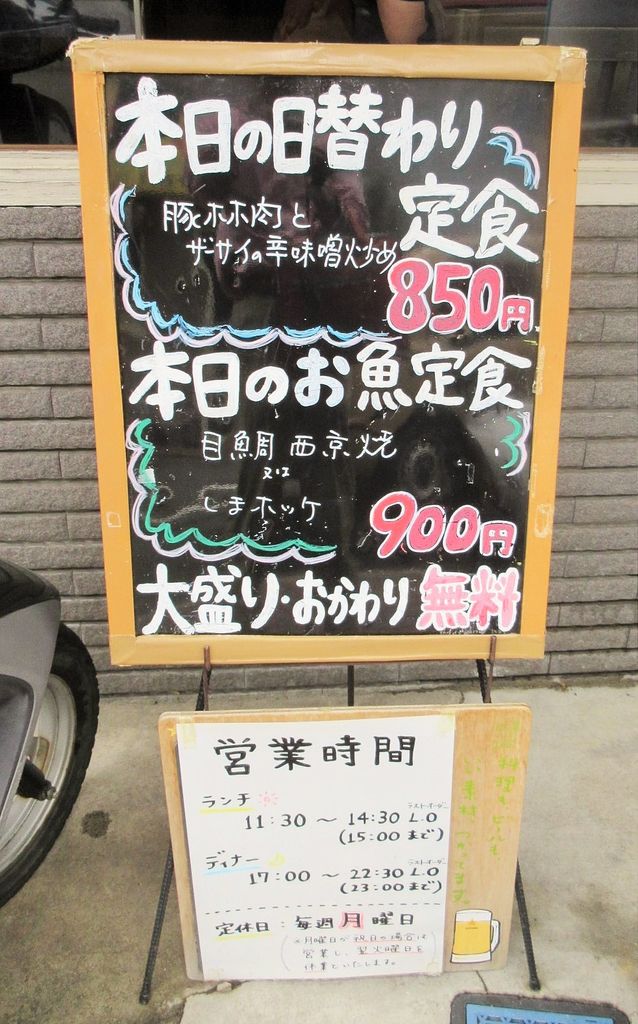 本日の日替わり
定食
豚ホホ肉と
ザーサイの辛味噌炒め
850円
本日のお魚定食
目鯛 西京焼
又は
しまホッケ
900円
大盛り・おかわり 無料
営業時間
ランチ ラストオーダー
11:30 ～ 14:30 L.O
(15:00 まで)
ディナー ラストオーダー
17:00 ～ 22:30 L.O
(23:00 まで)
定休日：毎週月曜日
※月曜日が祝日の場合は
営業し、翌火曜日を
休業といたします。
料理も
素材